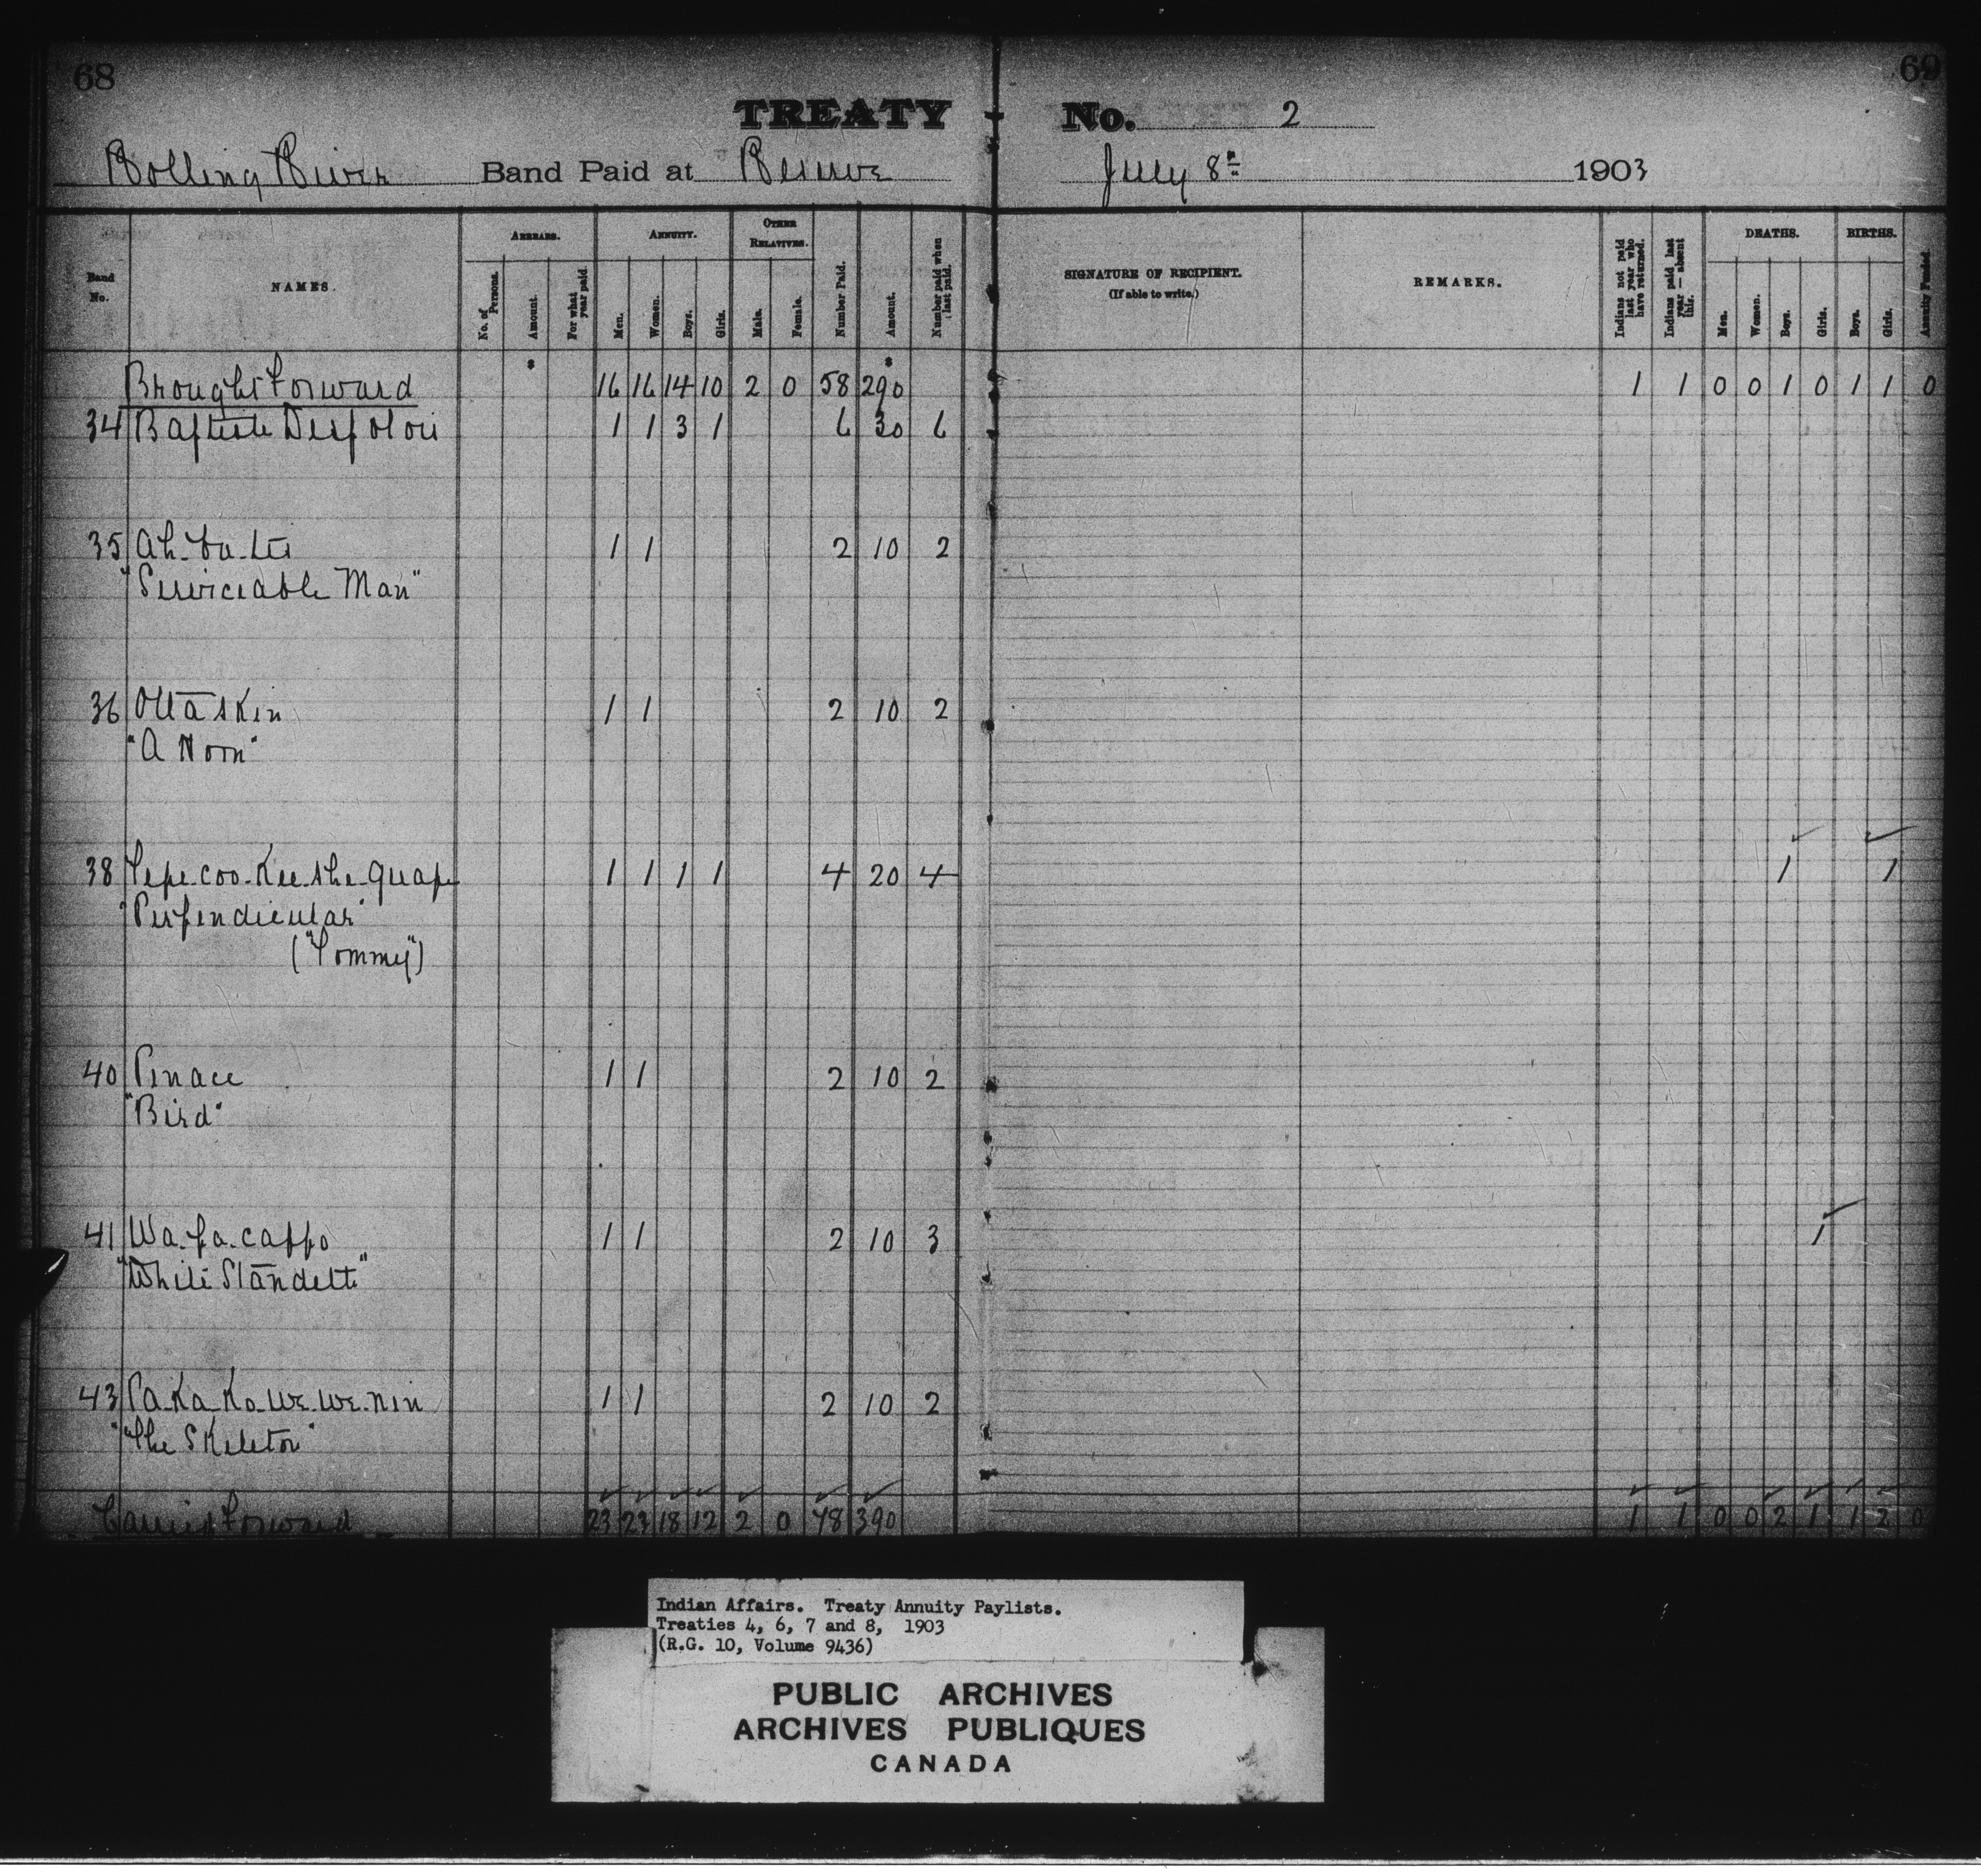 68
69
TREATY No. 2
Rolling River Band Paid at Reserve July 8th 1903
Band No.
NAMES.
ARREARS.
No. of Persons.
Amount.
For what year paid.
ANNUITY.
Men.
Women.
Boys.
Girls.
OTHER RELATIVES.
Male.
Female.
Number Paid.
Amount.
Number paid when last paid.
SIGNATURE OF RECIPIENT.
(If able to write.)
REMARKS.
Indians not paid last year who have returned.
Indians paid last year—absent this.
DEATHS.
Men.
Women.
Boys.
Girls.
BIRTHS.
Boys.
Girls.
Annuity Funded.
Brought Forward 16 16 14 10 2 0 58 290 1 1 0 0 1 0 1 1 0
34 Baptiste 1 1 3 1 6 30 6
35 1 1 2 10 2
"Serviceable Man"
36 Ottaskin 1 1 2 10 2
"A Horn"
38 Tepe-coo-Kee-she-quape 1 1 1 1 4 20 4 1 1
"Perpendicular"
("Tommy")
40 Pinace 1 1 2 10 2
"Bird"
41 Wa-pa-cappo 1 1 2 10 3 1
"White
43 Pa-Ka-Ko-We-We-nin 1 1 2 10 2
"The Skeleton"
Carried Forward 23 23 18 12 2 0 78 390 1 1 0 0 2 1 1 2 0
Indian Affairs. Treaty Annuity Paylists.
Treaties 4, 6, 7 and 8, 1903
(R.G. 10, Volume 9436)
PUBLIC ARCHIVES
ARCHIVES PUBLIQUES
CANADA